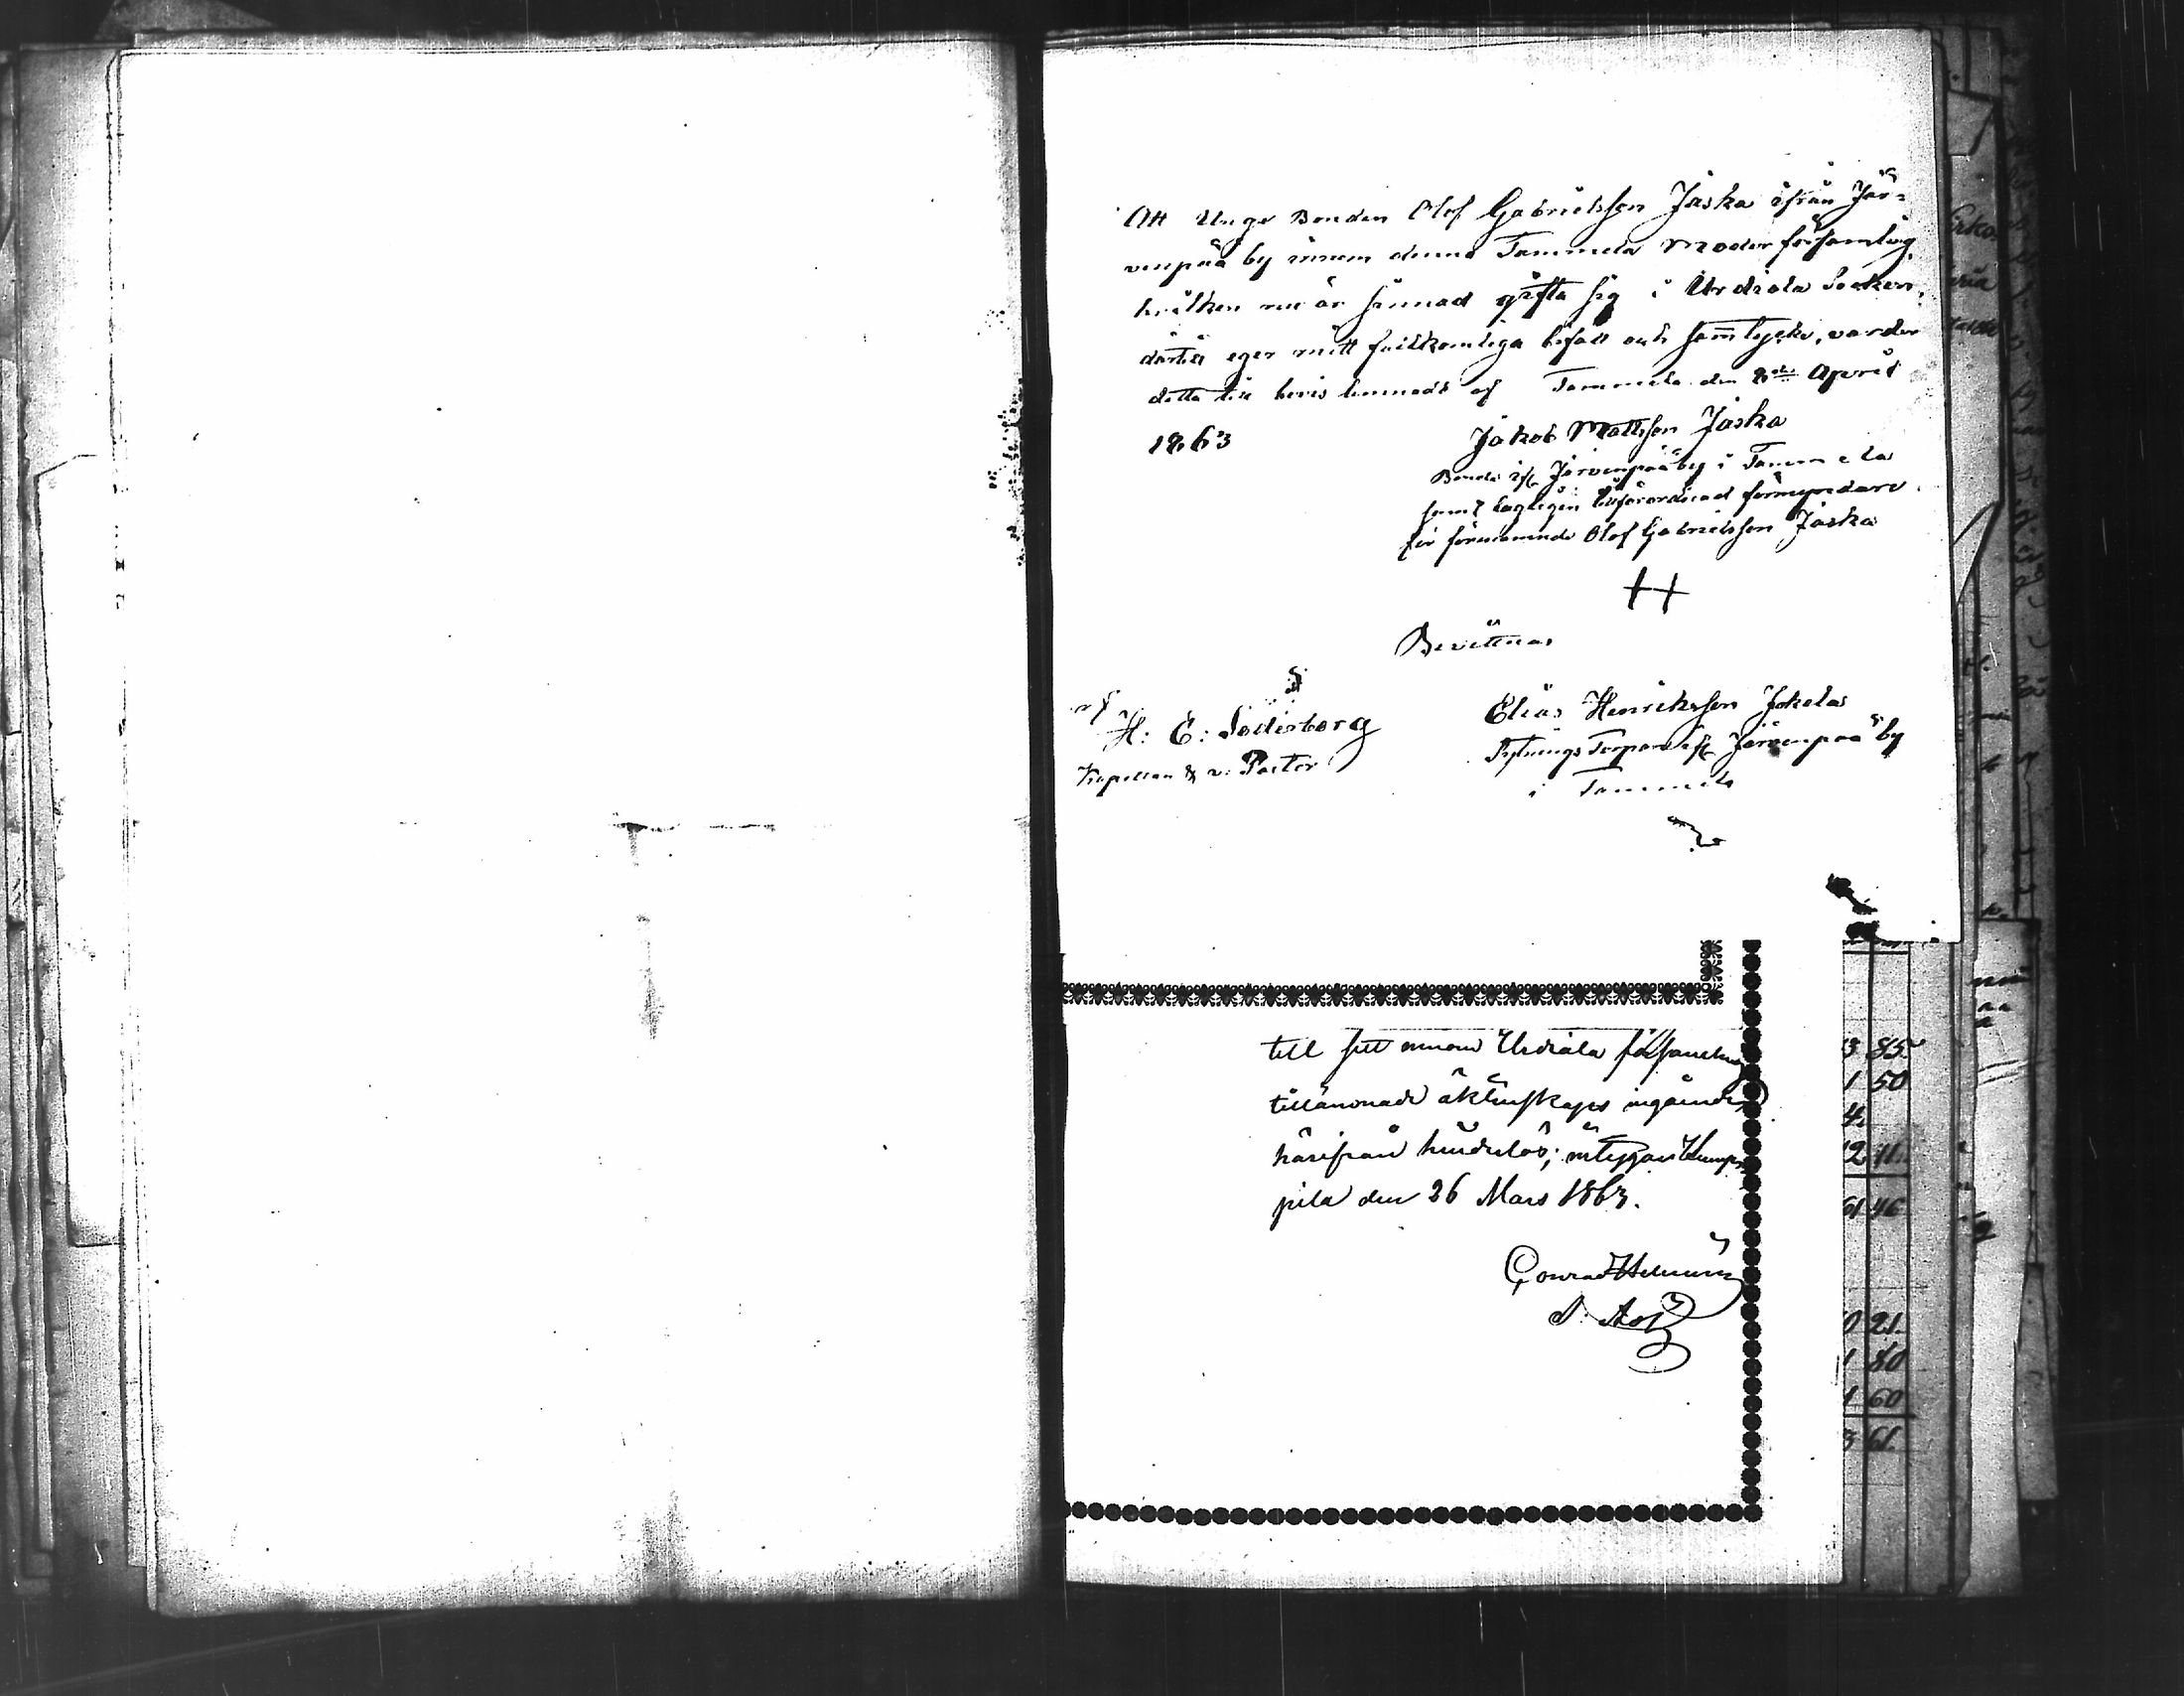 Att Unge Bonden Olof Gabrielsson Jaska ifrån Jär-
venpää by innom denna Tammela Moderförsamling,
hvilken nu är sinnad gifta sig i Urdiala Socken,
därtill eger mitt fullkomliga bifall och samtycke, varder
detta till bevis lemnadt af Tammela den 8de April
1863
Jakob Mattsson Jaska
Bonde ifr Järvenpää by i Tammela
samt lagligen tillförordnad förmyndare
för förenämnde Olof Gabrielsson Jaska
Bevittnas
af
H: E: Söderborg
Kapellan & v. Pastor
Elias Henriksson Jokela
Torpare ifr Järvenpää by
i Tammela
till sitt innom Urdiala församling
tillämnade äktenskaps ingående
härifrån hinderlös; intygar Hump-
pila den 26 Mars 1863.
Conrad
3 85
1 50
4
2 11
61 46
0 21
1 80
1 60
3 61